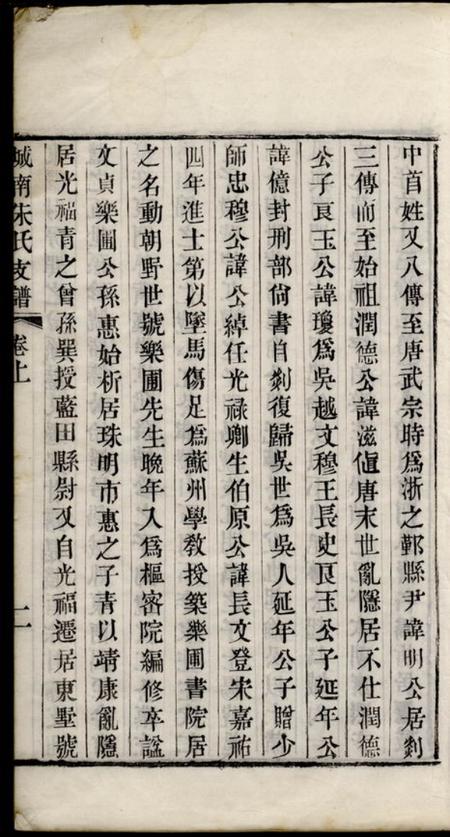 中首姓又八傳至唐武宗時爲浙之鄞縣尹諱明公居剡
三傳而至始祖潤德公諱滋値唐末世亂隱居不仕潤德
公子良玉公諱瓊爲吳越文穆王長史良玉公子延年公
諱億封刑部尙書自剡復歸吳世爲吳人延年公子贈少
師忠穆公諱公綽任光祿卿生伯原公諱長文登宋嘉祐
四年進士第以墜馬傷足爲蘇州學敎授築樂圃書院居
之名動朝野世號樂圃先生晚年入爲樞密院編修卒諡
文貞樂圃公孫惠始析居珠明市惠之子青以靖康亂隱
居光福青之曾孫巽授藍田縣尉又自光福遷居東墅號
城南朱氏支譜 卷上 二